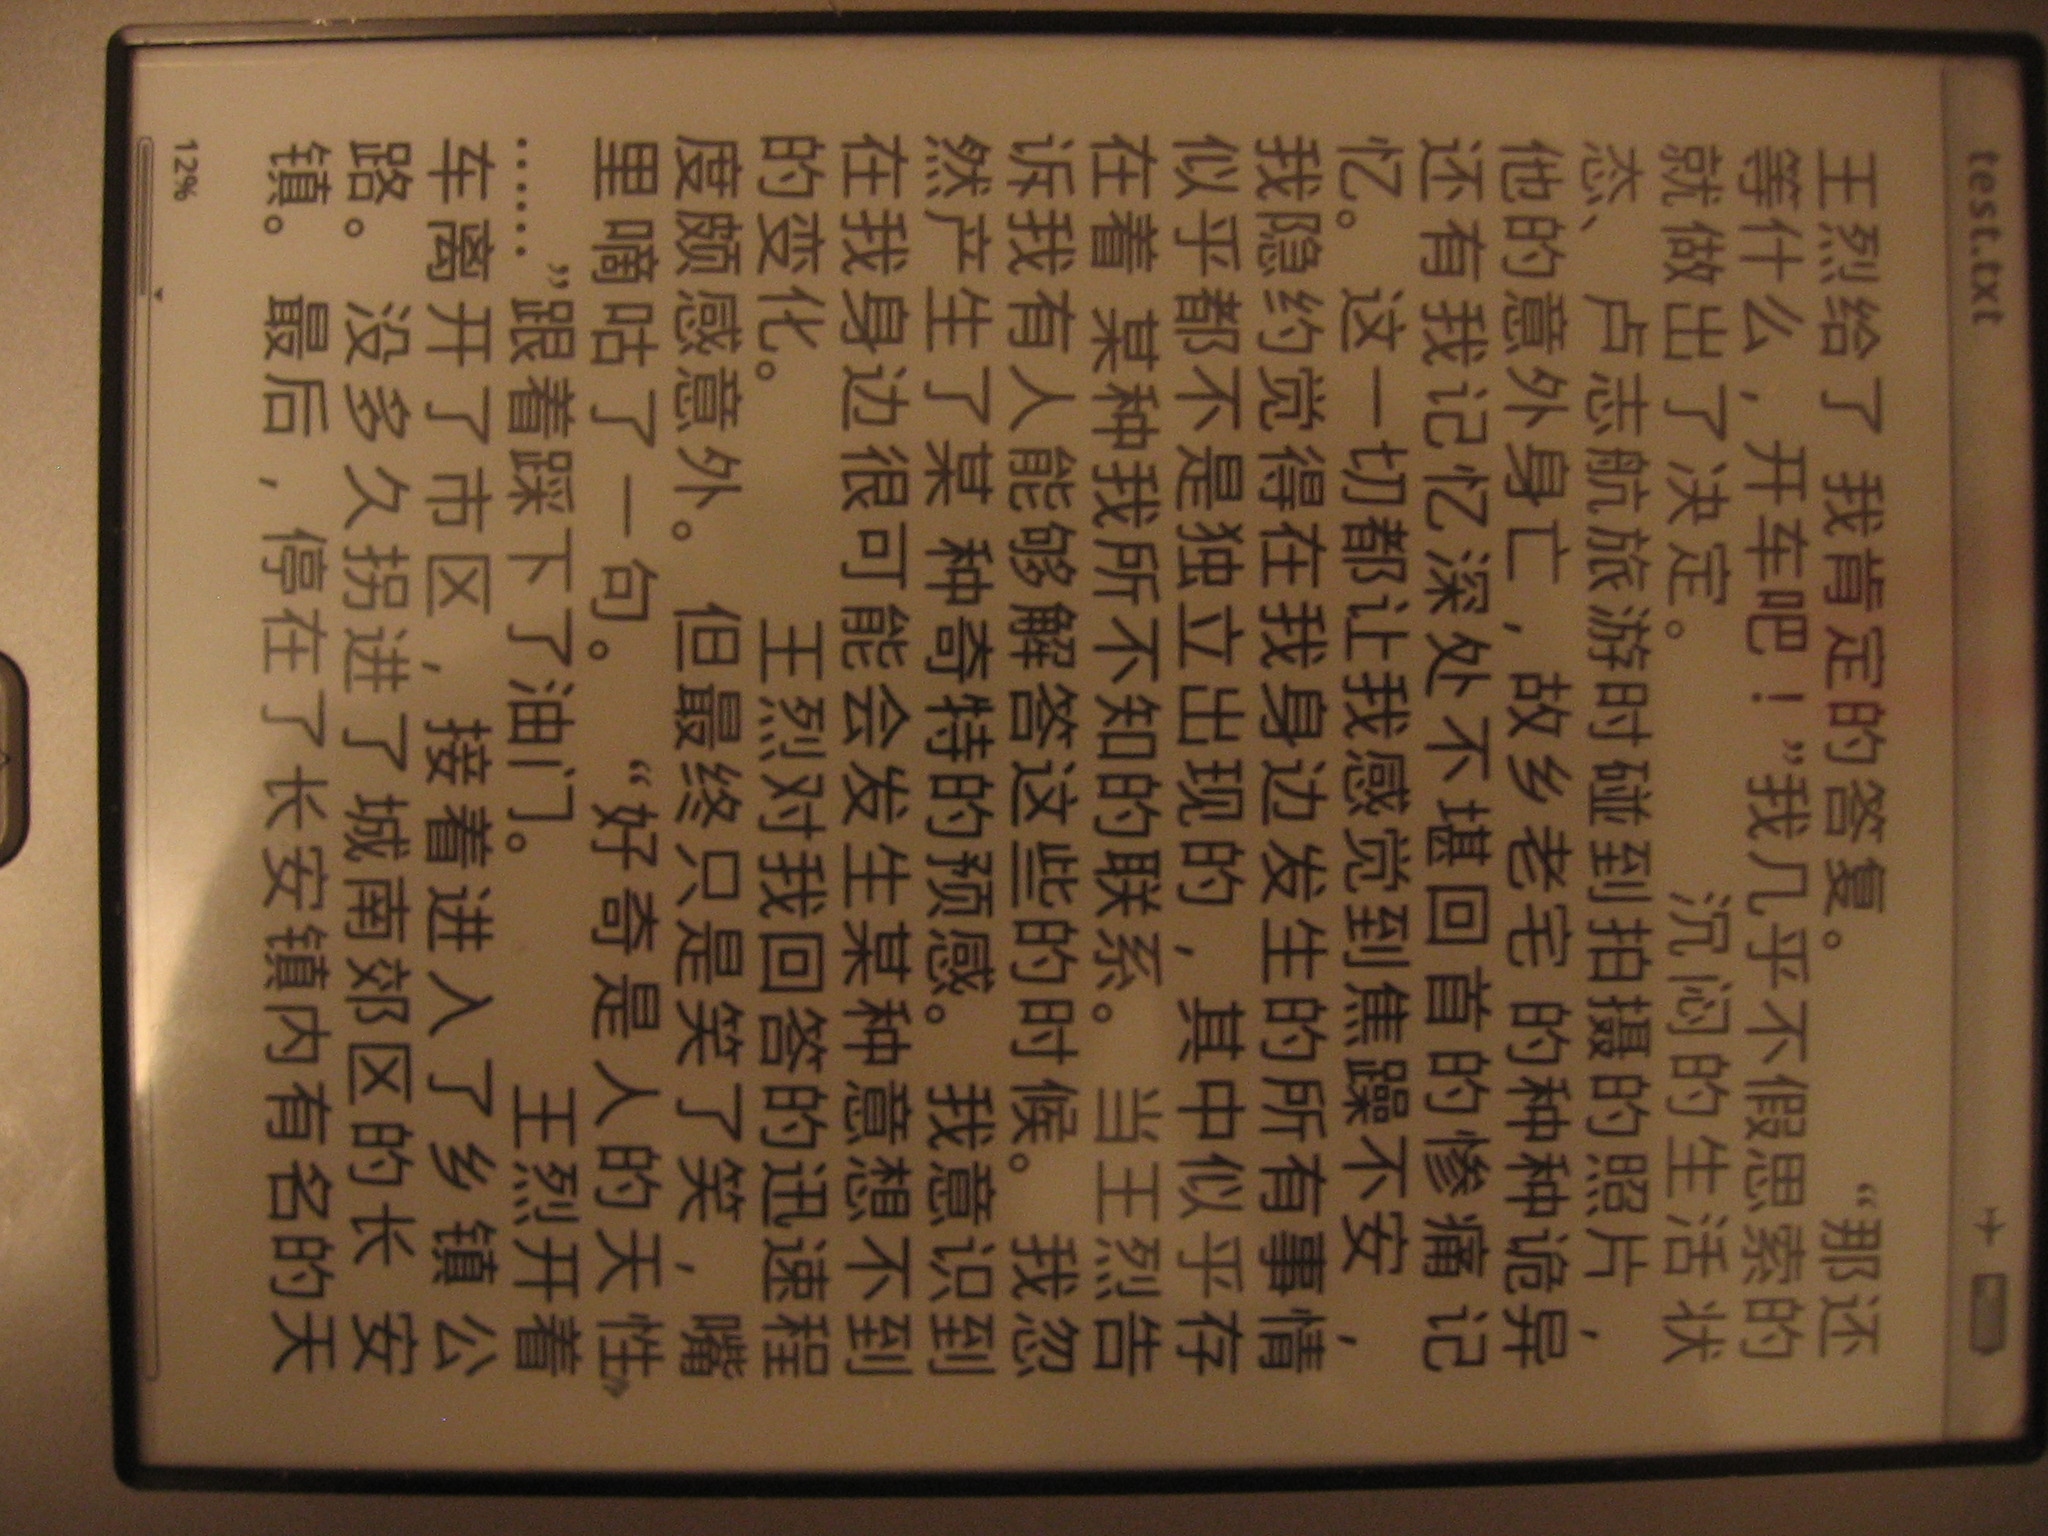 test.txt
王烈给了 我肯定的答复。 “那还
等什么，开车吧！”我几乎不假思索的
就做出了决定。 沉闷的生活状
态、 卢志航旅游时碰到拍摄的照片，
他的意外身亡，故乡老宅 的种种诡异，
还有我记忆深处不堪回首的惨痛 记
忆。 这一切都让我感觉到焦躁不安
我隐约觉得在我身边发生的所有事情，
似乎都不是独立出现的， 其中似乎存
在着 某种我所不知的联系。 当王烈告
诉我有人能够解答这些的时候。 我忽
然产生了某 种奇特的预感。 我意识到
在我身边很可能会发生某种意想不到
的变化。 王烈对我回答的迅速程
度颇感意外。 但最终只是笑了笑，嘴
里嘀咕了一句。 “好奇是人的天性
……”跟着踩下了油门。 王烈开着
车离开了市区，接着进入了乡镇公
路。 没多久拐进了城南郊区的长 安
镇。 最后，停在了长安镇内有名的天
12%